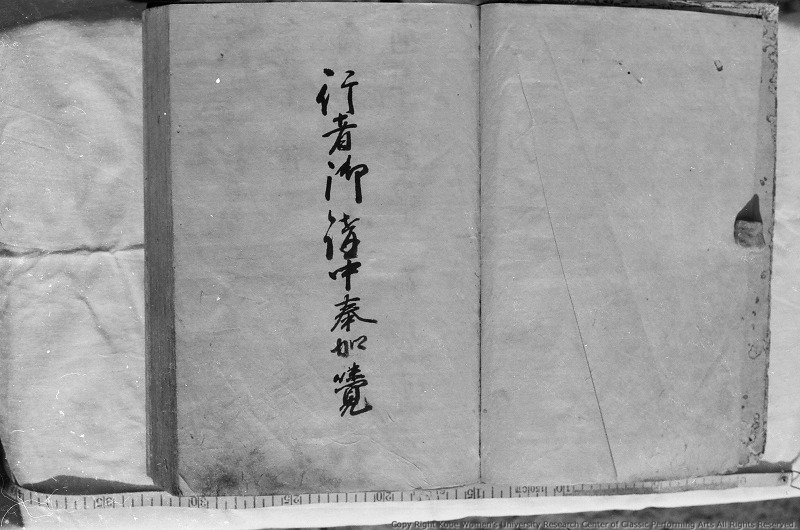 行者御講中奉加覚
Copy Right Kobe Women's University Research Center of Classic Performing Arts All Rights Reserved